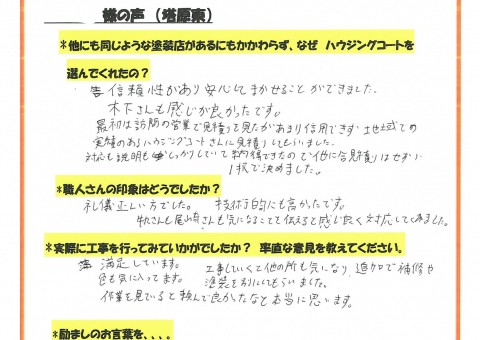 様の声（塔原東）
*他にも同じような塗装店があるにもかかわらず、なぜ ハウジングコートを
選んでくれたの？
信頼性があり安心してまかせることができました。
木下さんも感じが良かったです。
最初は訪問の営業で見積って見たがあまり信用できず 地域での
実績のあるハウジングコートさんに見積りしてもらいました。
対応も説明もしっかりしていて納得できたので他に合見積りはせず
1択で決めました。
*職人さんの印象はどうでしたか？
礼儀正しい方でした。 技術的にも高かったです。
さんも尾山さんも気になることを伝えると感じ良く対応して下さいました。
*実際に工事を行ってみていかがでしたか？ 率直な意見を教えてください。
満足しています。 工事していくと他の所も気になり、追加で補修や
色も気に入ってます。 塗装をお願いにもらいました。
作業を見ていると頼んで良かったなと本当に思います。
*励ましのお言葉を、、、、